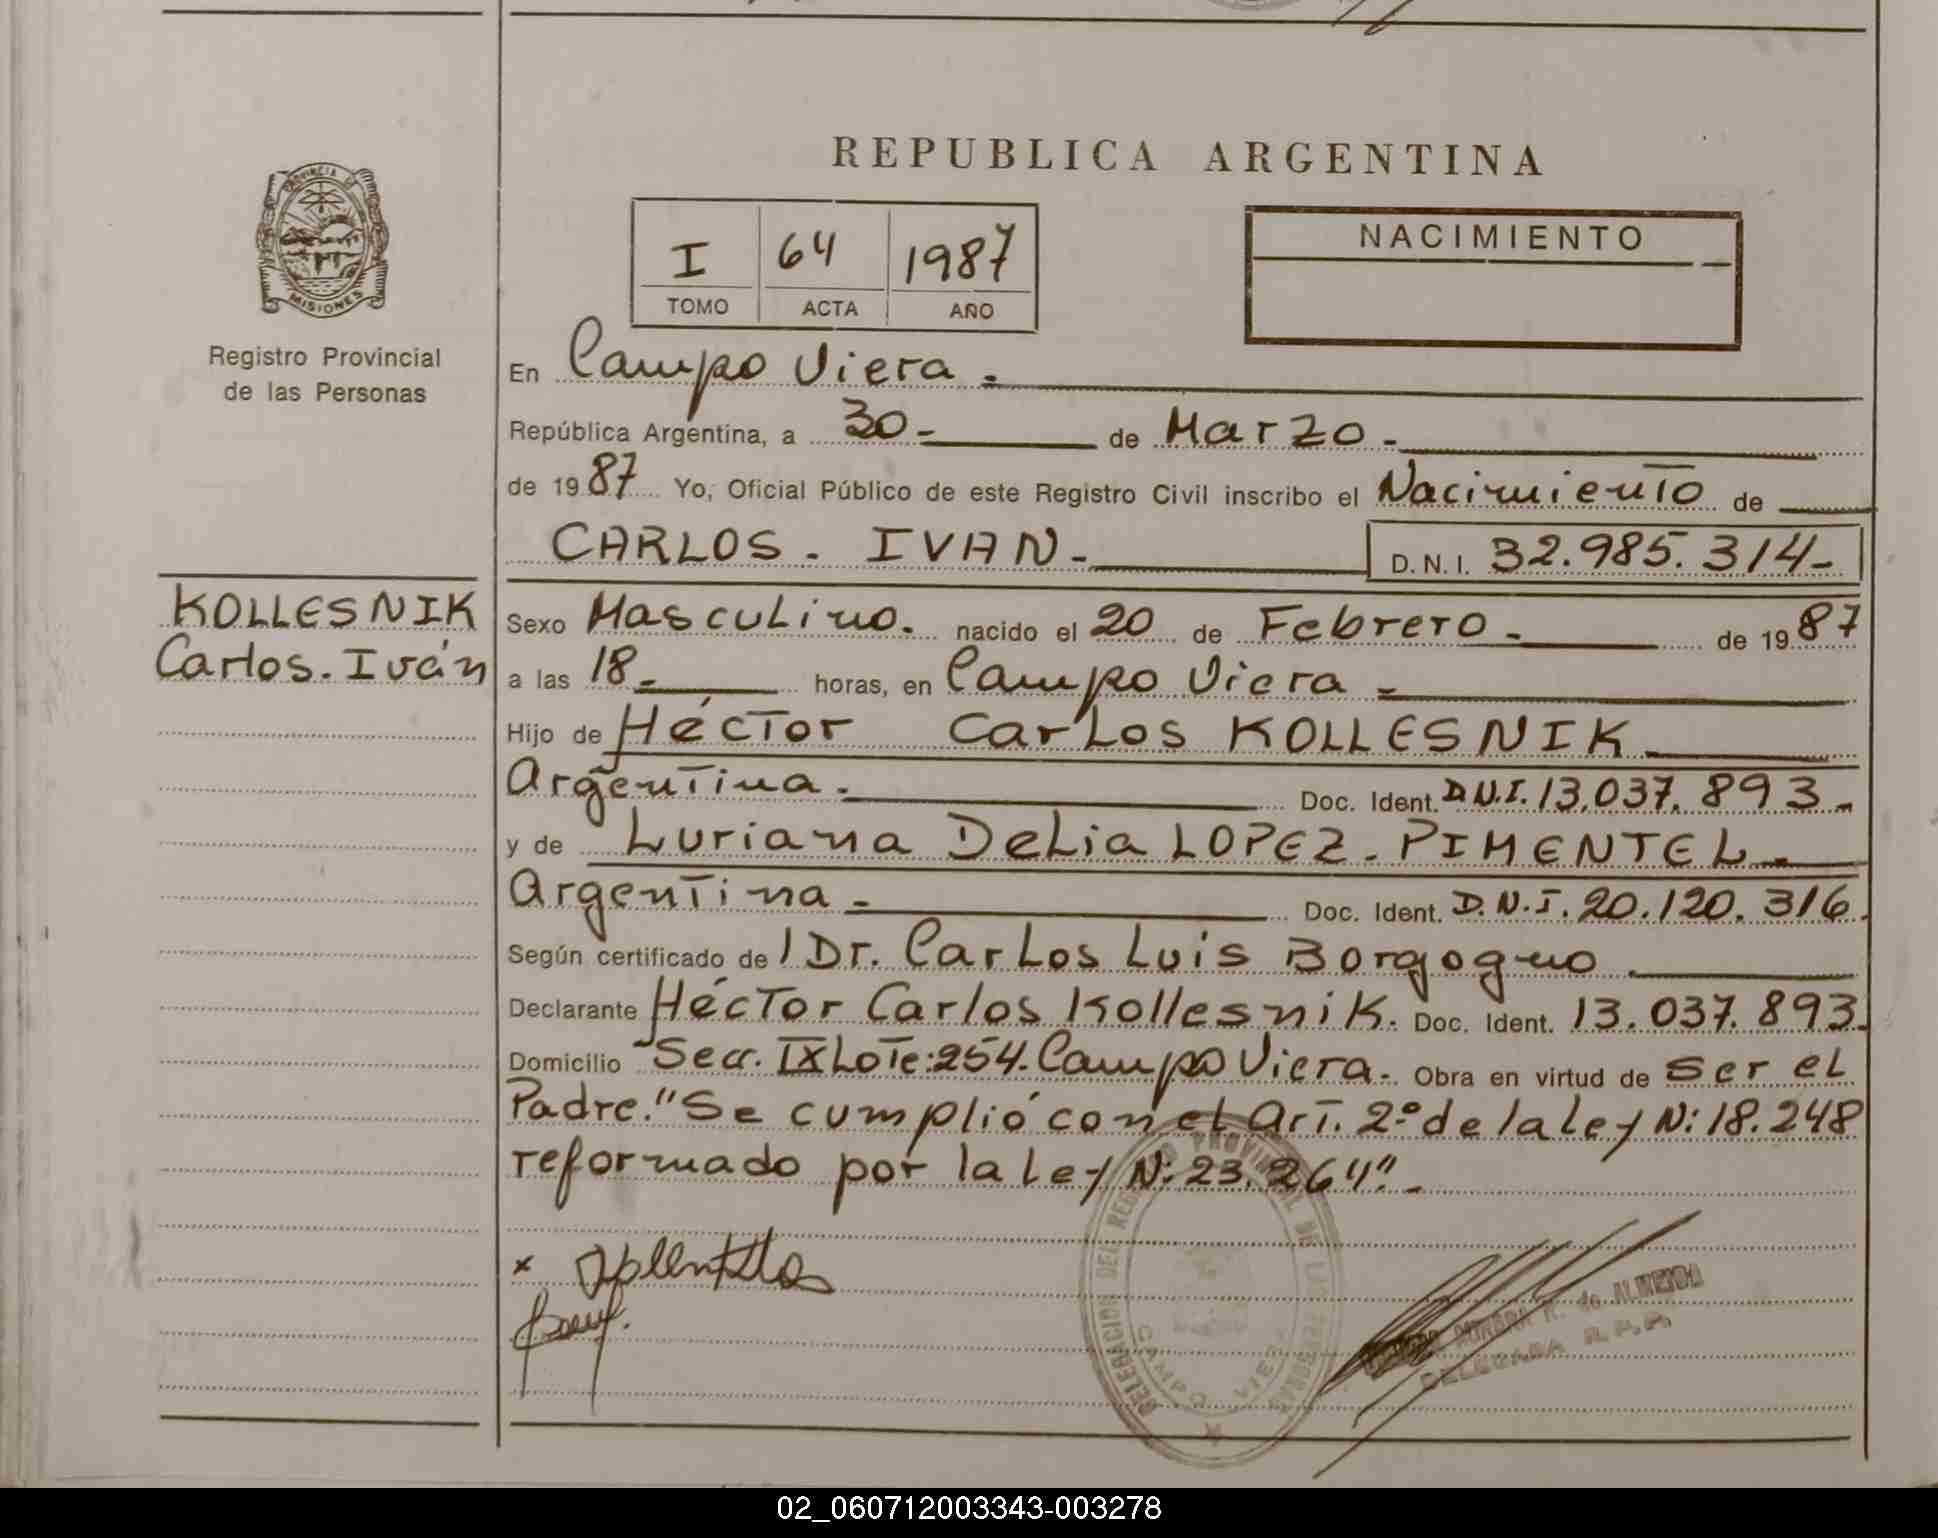 REPUBLICA ARGENTINA
PROVINCIA DE MISIONES
Registro Provincial
de las Personas
I 64 1987
TOMO ACTA AÑO
NACIMIENTO
En Campo Viera.
República Argentina, a 30- de Marzo-
de 1987 Yo, Oficial Público de este Registro Civil inscribo el Nacimiento de
CARLOS. IVAN- D.N.I. 32.985.314-
KOLLESNIK
Carlos. Iván
Sexo Masculino. nacido el 20 de Febrero- de 1987
a las 18- horas, en Campo Viera-
Hijo de Héctor Carlos KOLLESNIK
Argentina. Doc. Ident. D.N.I. 13.037.893-
y de Luriana Delia LOPEZ. PIMENTEL-
Argentina- Doc. Ident. D.N.I. 20.120.316.
Según certificado de / Dr. Carlos Luis Borgogno.
Declarante Héctor Carlos Kollesnik. Doc. Ident. 13.037.893.
Domicilio Secc. IX Lote:254. Campo Viera- Obra en virtud de ser el
Padre."Se cumplió con el Art. 2º de la Ley N: 18.248
reformado por la Ley N: 23.264".-
x
DELEGACION DEL REGISTRO PROVINCIAL DE LAS PERSONAS
CAMPO VIERA
de ALMEIDA
DELEGADA R.P.P.
02_060712003343-003278